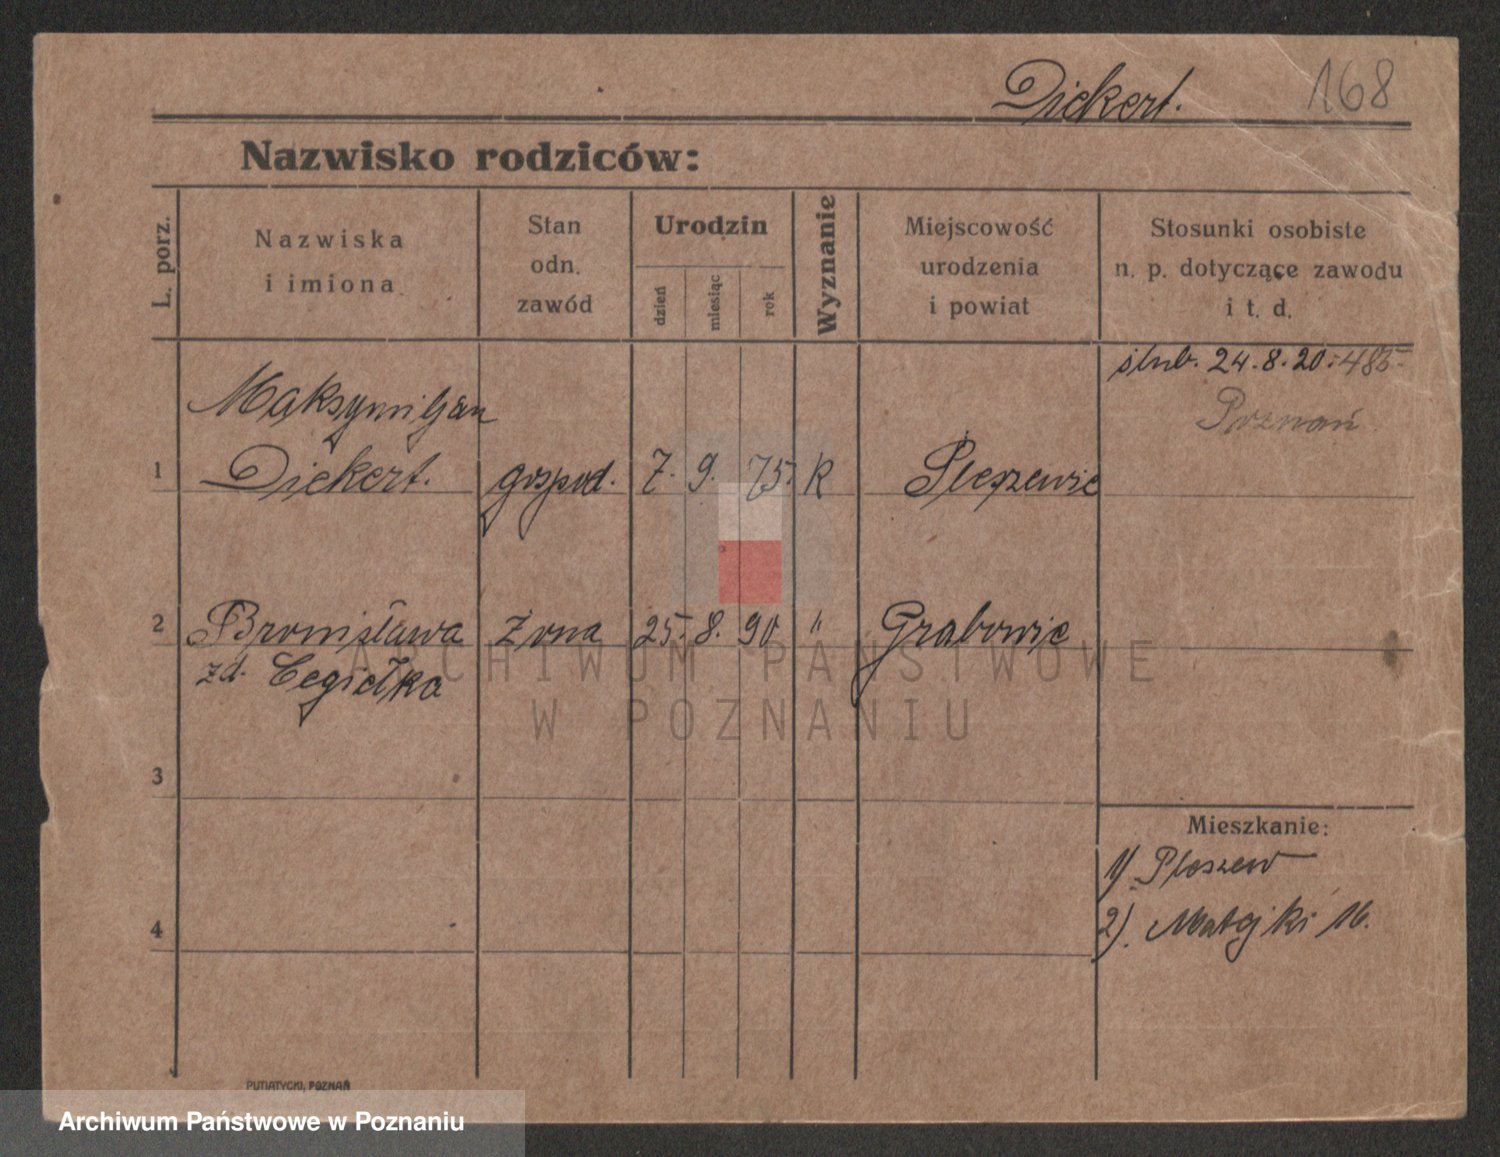 Dickert. 168
Nazwisko rodziców:
L. porz.
Nazwiska
i imiona
Stan
odn.
zawód
Urodzin
dzień
miesiąc
rok
Wyznanie
Miejscowość
urodzenia
i powiat
Stosunki osobiste
n. p. dotyczące zawodu
i t. d.
ślub. 24.8.20. 485
Poznań
Maksymiljan
1 Dickert. gospod. 7. 9. 75. K Pleszewie
2 Bronisława żona 25. 8. 90 " Grabowie
zd. Cegiełka
3
Mieszkanie:
1/. Pleszew
4
2). Matejki 16.
ARCHIWUM PAŃSTWOWE
W POZNANIU
PUTIATYCKI, POZNAŃ
Archiwum Państwowe w Poznaniu